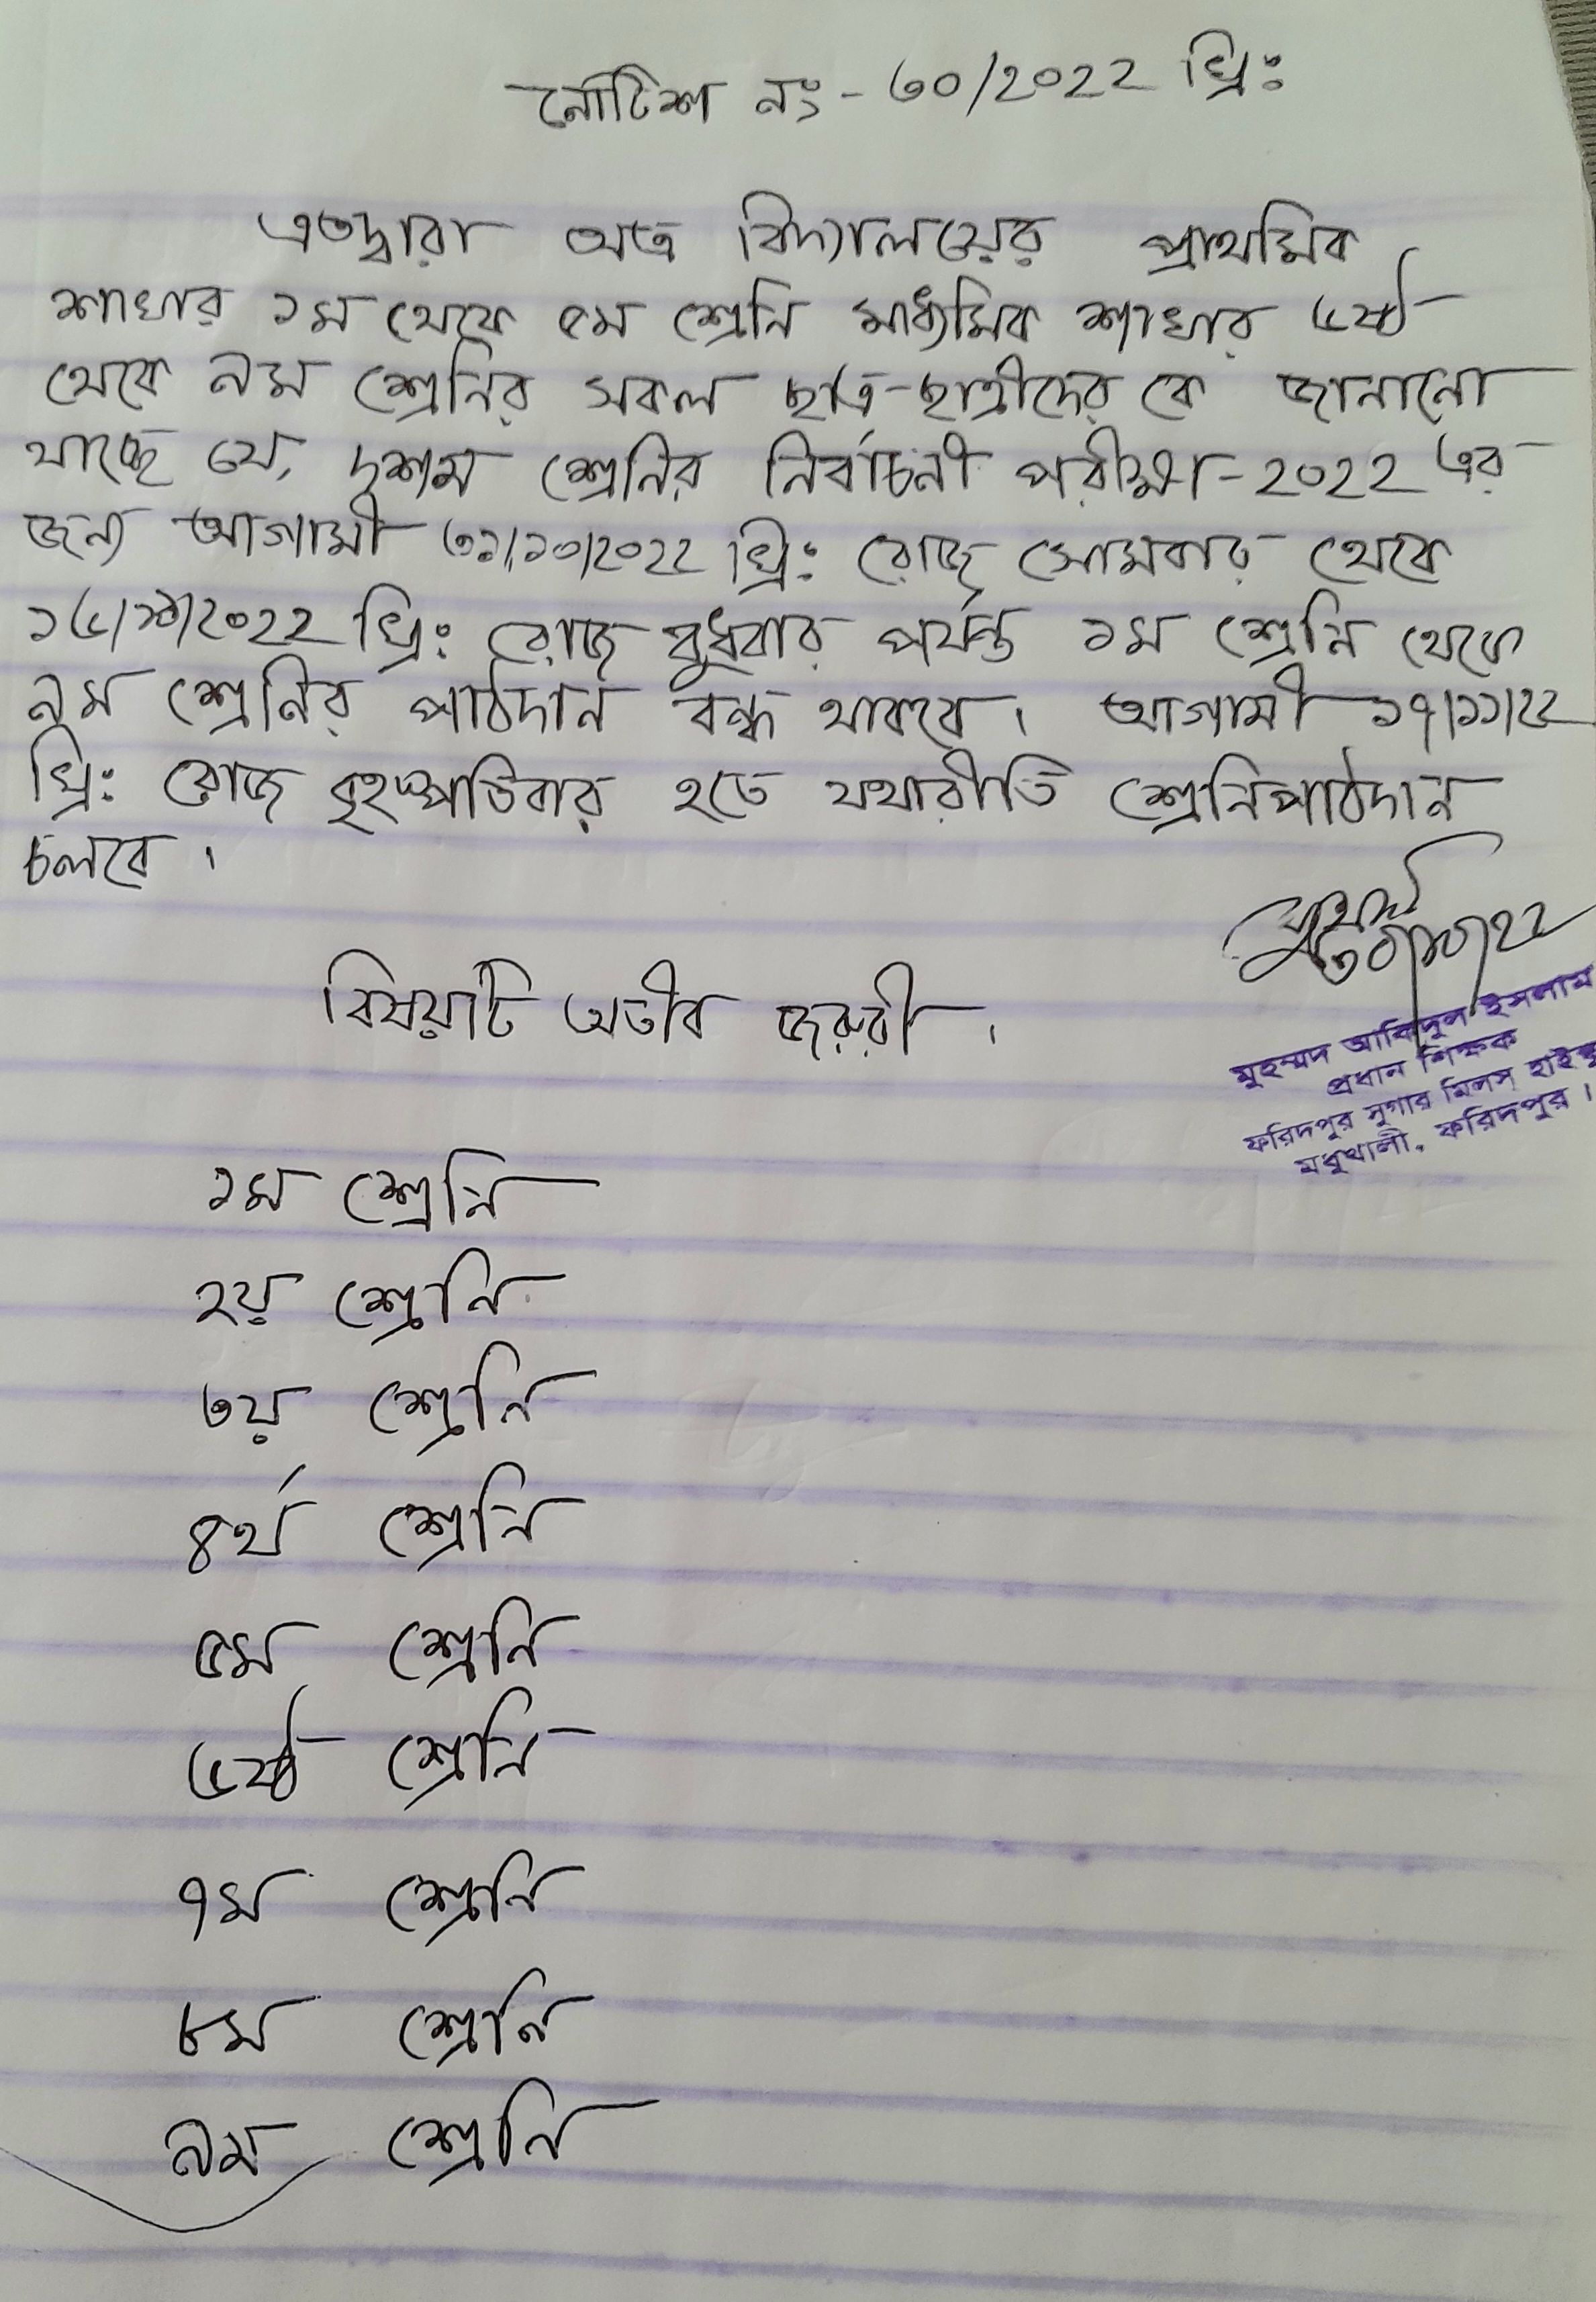 নোটিশ নং - ৩০/২০২২ খ্রিঃ
এতদ্বারা অত্র বিদ্যালয়ের প্রাথমিক
শাখার ১ম থেকে ৫ম শ্রেনি মাধ্যমিক শাখার ৬ষ্ঠ
থেকে ৯ম শ্রেনির সকল ছাত্র-ছাত্রীদের কে জানানো
যাচ্ছে যে, দশম শ্রেনির নির্বাচনী পরীক্ষা-২০২২ এর
জন্য আগামী ৩১/১০/২০২২ খ্রিঃ রোজ সোমবার থেকে
১৬/১১/২০২২ খ্রিঃ রোজ বুধবার পর্যন্ত ১ম শ্রেনি থেকে
৯ম শ্রেনির পাঠদান বন্ধ থাকবে। আগামী ১৭/১১/২২
খ্রিঃ রোজ বৃহস্পতিবার হতে যথারীতি শ্রেনিপাঠদান
চলবে।
৩০/১০/২২
বিষয়টি অতীব জরুরী।
মুহম্মদ আকিদুল ইসলাম
প্রধান শিক্ষক
ফরিদপুর সুগার মিলস্ হাইস্কু
মধুখালী, ফরিদপুর।
১ম শ্রেনি
২য় শ্রেনি
৩য় শ্রেনি
৪র্থ শ্রেনি
৫ম শ্রেনি
৬ষ্ঠ শ্রেনি
৭ম শ্রেনি
৮ম শ্রেনি
৯ম শ্রেনি